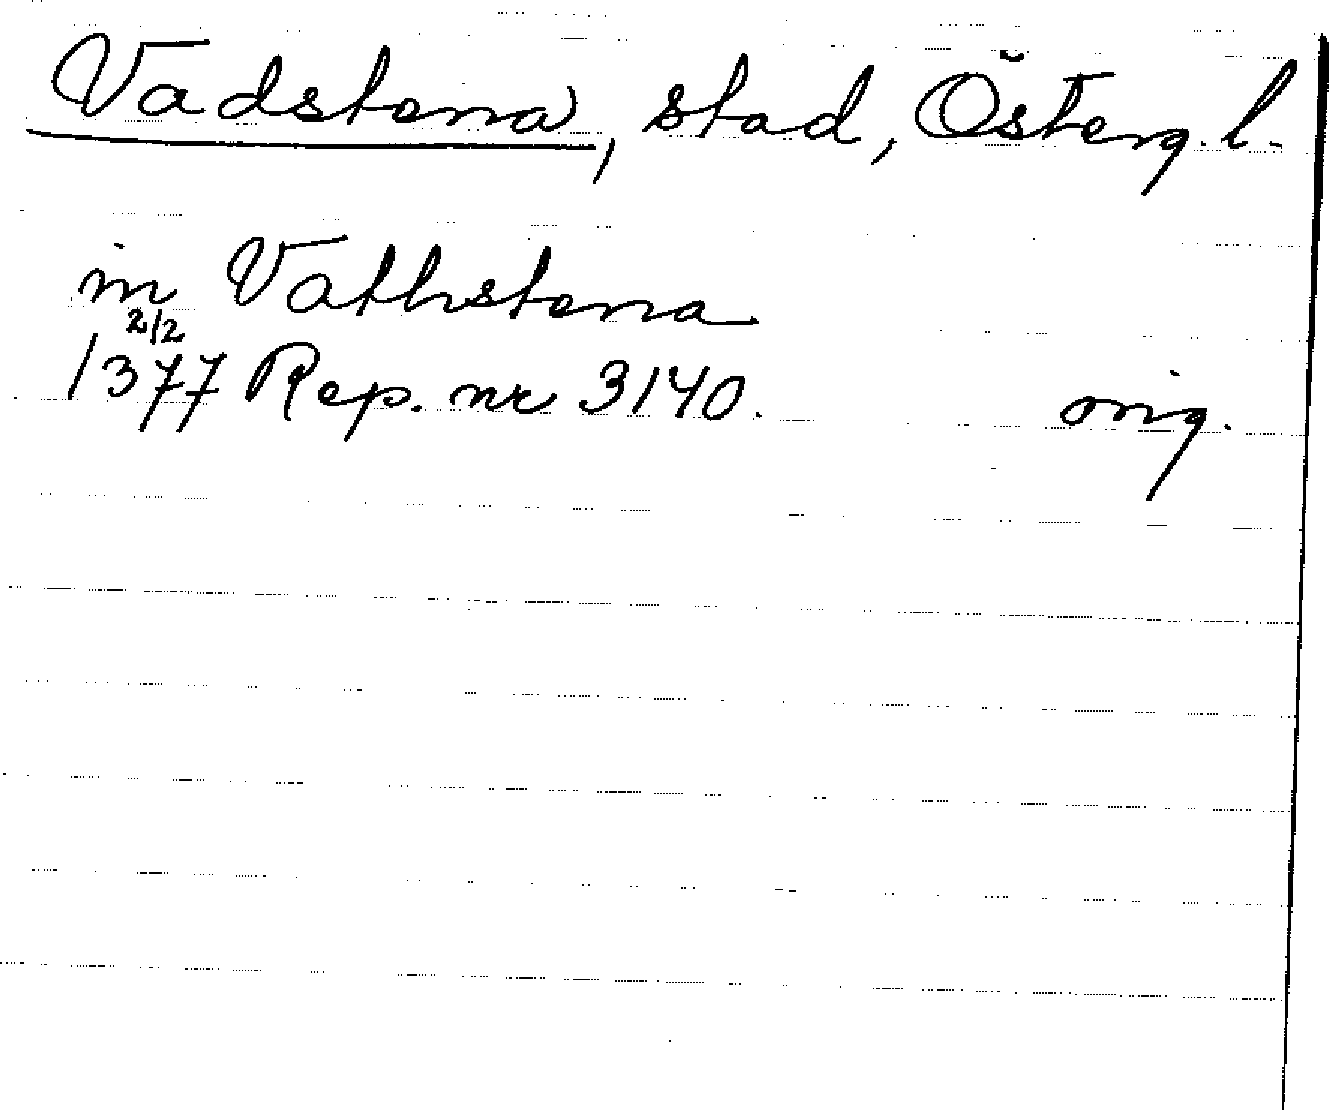 Vadstena, stad, Österg. l.
in Vathstena
2/2
1377 Rep. nr 3140. orig.